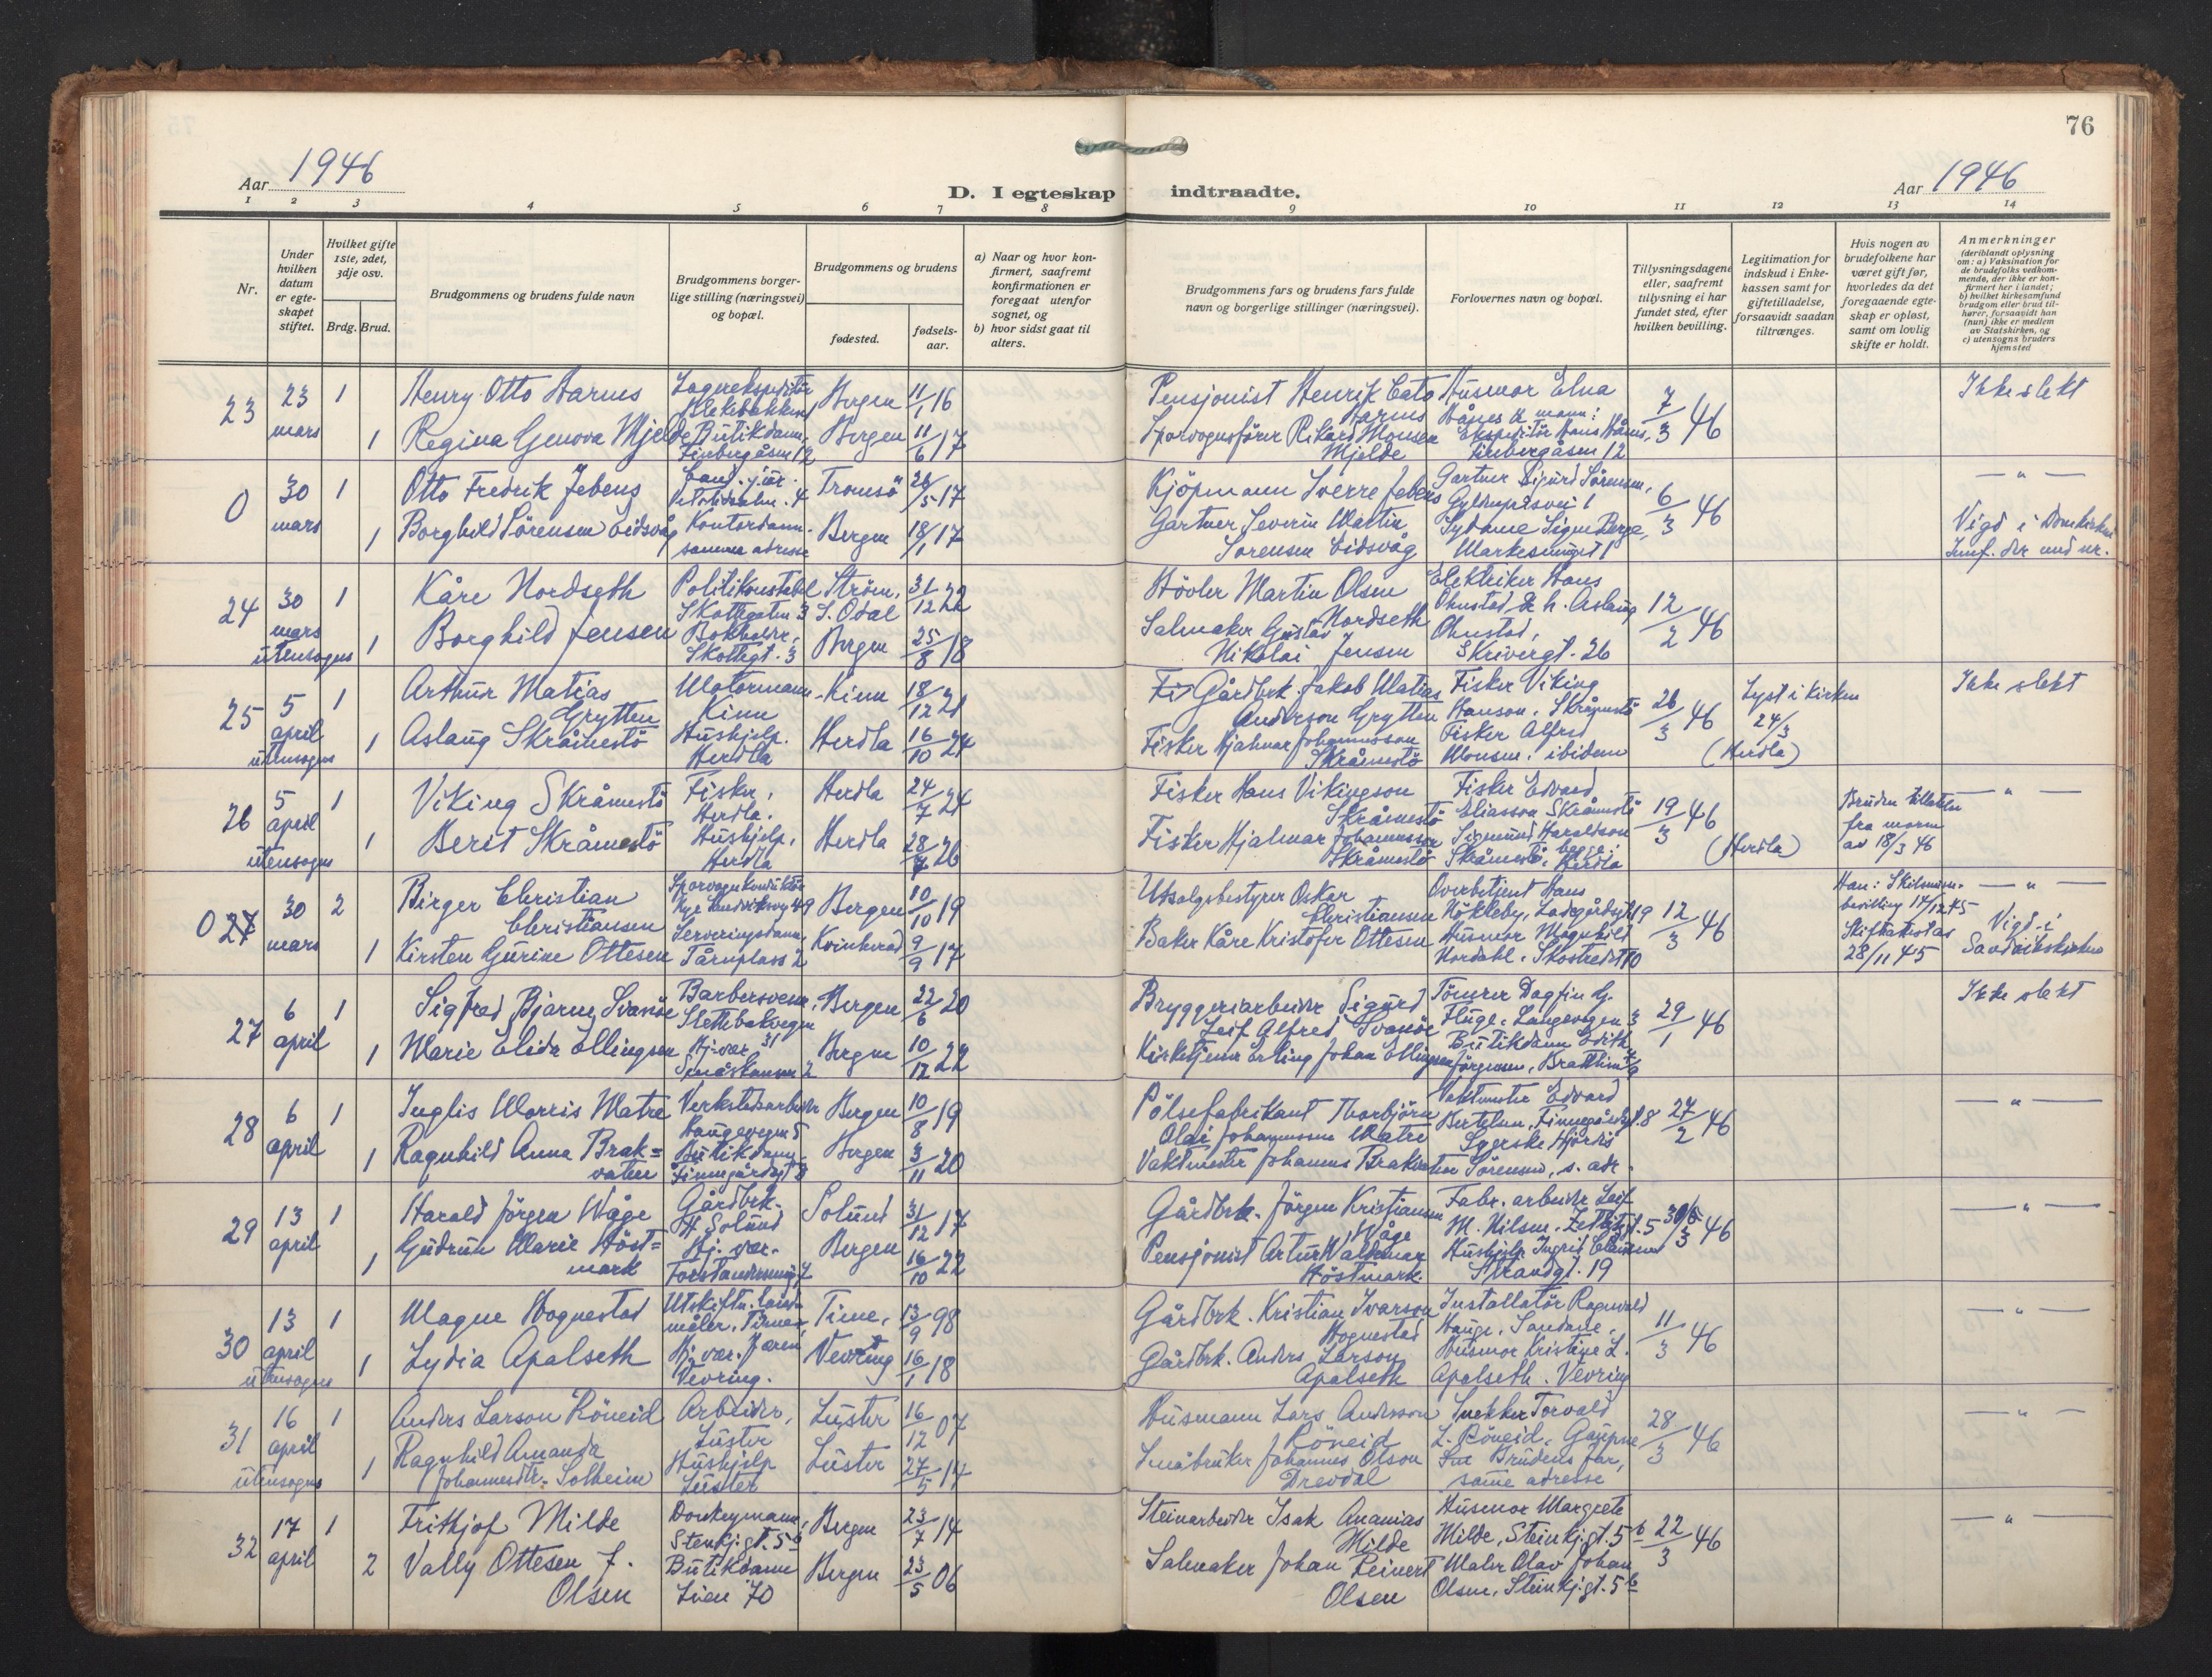 76
Aar 1946
D. I egteskap indtraadte.
Aar 1946
1 2 3 4 5 6 7 8 9 10 11 12 13 14
Nr.
Under hvilken datum er egteskapet stiftet.
Hvilket gifte 1ste, 2det, 3dje osv.
Brdg. Brud.
Brudgommens og brudens fulde navn
Brudgommens borgerlige stilling (næringsvei) og bopæl.
Brudgommens og brudens
fødested.
fødselsaar.
a) Naar og hvor konfirmert, saafremt konfirmationen er foregaat utenfor sognet, og
b) hvor sidst gaat til alters.
Brudgommens fars og brudens fars fulde navn og borgerlige stillinger (næringsvei).
Forlovernes navn og bopæl.
Tillysningsdagene eller, saafremt tillysning ei har fundet sted, efter hvilken bevilling.
Legitimation for indskud i Enkekassen samt for giftetilladelse, forsaavidt saadan tiltrænges.
Hvis nogen av brudefolkene har været gift før, hvorledes da det foregaaende egteskap er opløst, samt om lovlig skifte er holdt.
Anmerkninger (deriblandt oplysning om: a) Vaksination for de brudefolks vedkommende, der ikke er konfirmert her i landet; b) hvilket kirkesamfund brudgom eller brud tilhører, forsaavidt han (hun) ikke er medlem av Statskirken, og c) utensogns bruders hjemsted
23
23 mars
1
Henry Otto Harms
Lagerekspeditör
Bergen
11/1 16
Pensjonist Henrik Cato Harms
Husmor Elna
7/3 46
Ikke slekt
1
Regina Genova Mjelde
Butikdame,
Finbergåsen 12
Bergen
11/6 17
Sporvognsförer Rikard Monsen Mjelde
Finbergåsen 12
0
30 mars
1
Otto Fredrik Jebens
Cand. jur.
Tromsö
26/5 17
Kjöpmann Sverre Jebens
Gartner Sigurd Sörensen,
6/3 46
— " —
1
Borghild Sörensen Eidsvåg
Kontordame
samme adresse
Bergen
18/1 17
Gartner Severin Martin Sörensen Eidsvåg
Sydame Signe Berge,
Vigd i Domkirken
24
30 mars
utensogns
1
Kåre Nordseth
Politikonstabel
Skottegaten 3
Ström, S. Odal
31/12 22
Hövler Martin Olsen Nordseth
Elektriker Hans Ohnstad, & h. Aslaug Ohnstad,
Skrivergt. 26
12/2 46
1
Borghild Jensen
Skottegt. 3
Bergen
25/8 18
Salmaker Gustav Nikolai Jensen
25
5 april
utensogns
1
Arthur Matias Grytten
Motormann
Kinn
Kinn
18/12 21
Gårdbrk. Jakob Matias Anderson Grytten
Fisker Viking Hanson, Skråmestö
26/3 46
Lyst i kirken 24/3
(Herdla)
Ikke slekt
1
Aslaug Skråmestö
Hushjelp.
Herdla
Herdla
16/10 24
Fisker Hjalmar Johannesson Skråmestö
Fisker Alfred Monsen, ibidem
26
5 april
utensogns
1
Viking Skråmestö
Fisker,
Herdla.
Herdla
24/7 24
Fisker Hans Vikingson Skråmestö
Fisker Edvard Eliasson Skråmestö
19/3 46
(Herdla)
Bruden tillatelse fra moren av 18/3 46
— " —
1
Berit Skråmestö
Hushjelp,
Herdla
Herdla
28/7 26
Fisker Hjalmar Johannesson Skråmestö
Sigmund Haraldson Skråmestö, begge: Herdla
0 27
30 mars
2
Birger Christian Christiansen
Sporvognkonduktör
Bergen
10/10 19
Utsalgsbestyrer Oskar Christiansen
Overbetjent Hans Hökleby, Ladegårdsgt 19
12/3 46
Han: Skilsmisse-bevilling 14/12 45
Skifteattestas 28/11 45
— " —
1
Kirsten Gurine Ottesen
Serveringsdame,
Tårnplass 2
Kvinherad
9/9 17
Baker Kåre Kristofer Ottesen
Husmor Magnhild Nordahl, Skostredet 10
Vigd i Sandvikskirken
27
6 april
1
Sigfred Bjarne Svanöe
Barbersvenn,
Slettebakvegen 31
Bergen
22/6 20
Bryggeriarbeider Sigurd Leif Alfred Svanöe
Tömrer Dagfin G. Fluge, Langevegen 3
29/1 46
Ikke slekt
1
Marie Elide Ellingsen
Hj. vær.
Småskansen 2
Bergen
10/12 22
Kirketjener Erling Johan Ellingsen
Butikdame Edith Jörgensen,
28
6 april
1
Inglis Morris Matre
Verkstedsarbeider
Haugevegen 5
Bergen
10/8 19
Pölsefabrikant Thorbjörn Olai Johannessen Matre
Vaktmester Edvard Bertelsen, Finnegårdsgt. 8
27/2 46
— " —
1
Ragnhild Anna Brakvaten
Butikdame
Finnegårdsgt 8
Bergen
3/11 20
Vaktmester Johannes Brakvaten
Sörensen, s. adr.
29
13 april
1
Harald Jörgen Wåge
Gårdbrk.
Solund
31/12 17
Gårdbrk. Jörgen Kristiansen Wåge
Fabr. arbeider Leif M. Nilsen,
3 46
— " —
1
Gudrun Marie Höstmark
Hj. vær.
Bergen
16/10 22
Pensjonist Artur Waldemar Höstmark
Hushjelp Ingrid
Strandgt. 19
30
13 april
utensogns
1
Magne Hognestad
Utskiftn. landmåler,
Time,
13/9 98
Gårdbrk. Kristian Ivarson Hognestad
Installatör Ragnvald Hauge, Sandane,
11/3 46
— " —
1
Lydia Apalseth
Hj. vær.
Vevring.
Vevring
16/1 18
Gårdbrk. Anders Larson Apalseth
Husmor Kristine L. Apalseth. Vevring
31
16 april
utensogns
1
Anders Larson Röneid
Arbeider,
Luster
Luster
16/12 07
Husmann Lars Andersson Röneid
Snekker Torvald L. Röneid, Gaupne
28/3 46
— " —
1
Ragnhild Amanda Johannesdtr. Solheim
Hushjelp
Luster
Luster
27/5 14
Småbruker Johannes Olson Drevdal
Brudens far, same adresse
32
17 april
1
Frithjof Milde
Donkeymann,
Stenkj.gt. 5b
Bergen
23/7 14
Steinarbeider Isak Ananias Milde
Husmor Margrete Milde, Steinkj.gt. 5b
22/3 46
— " —
2
Vally Ottesen f. Olsen
Butikdame
Lien 70
Bergen
23/5 06
Salmaker Johan Reinert Olsen
Maler Olav Johan Olsen, Steinkj.gt. 5b